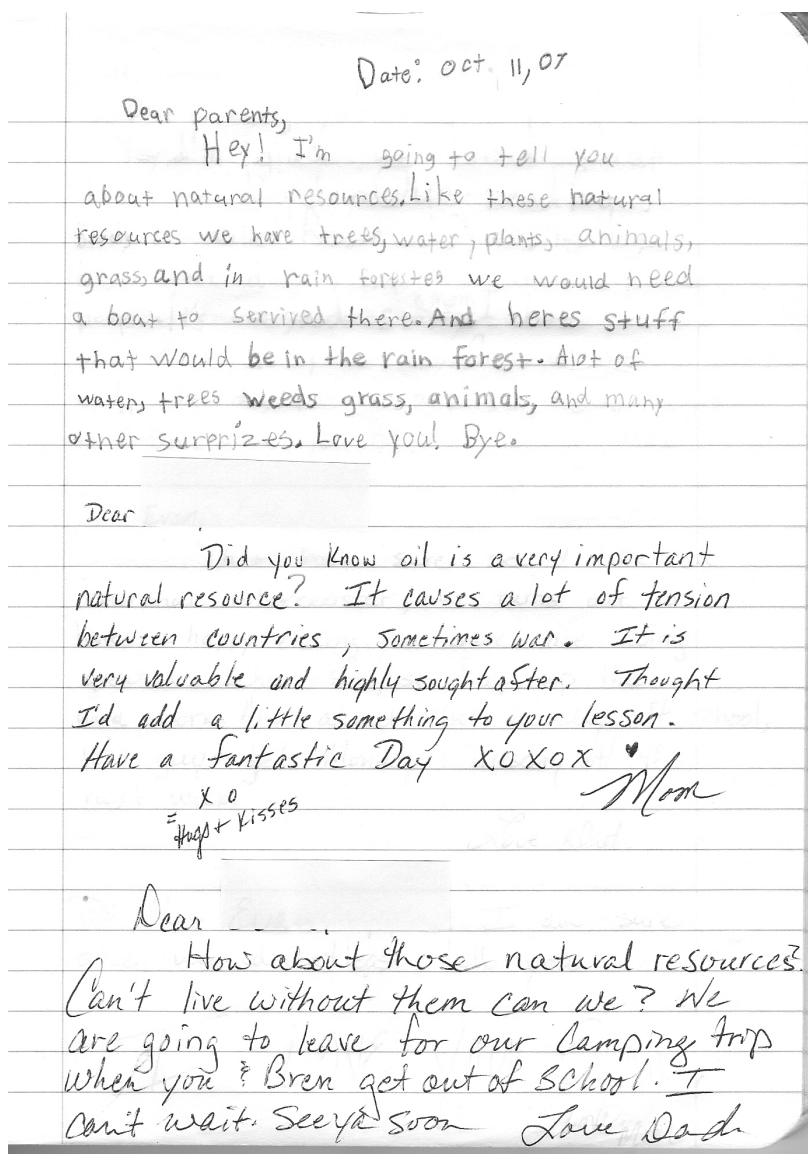 Date: Oct. 11, 07
Dear parents,
Hey! I'm going to tell you
about natural resources. Like these natural
resources we have trees, water, plants, animals,
grass, and in rain forestes we would need
a boat to servived there. And heres stuff
that would be in the rain forest. Alot of
water, trees weeds grass, animals, and many
other surprizes. Love you! Bye.
Dear
Did you know oil is a very important
natural resource? It causes a lot of tension
between countries, sometimes war. It is
very valuable and highly sought after. Thought
I'd add a little something to your lesson.
Have a fantastic Day XOXOX ♥
Mom
X O
= Hugs + Kisses
Dear
How about those natural resources?
Can't live without them can we? We
are going to leave for our Camping trip
when you & Bren get out of School. I
can't wait. See ya Soon Love Dad